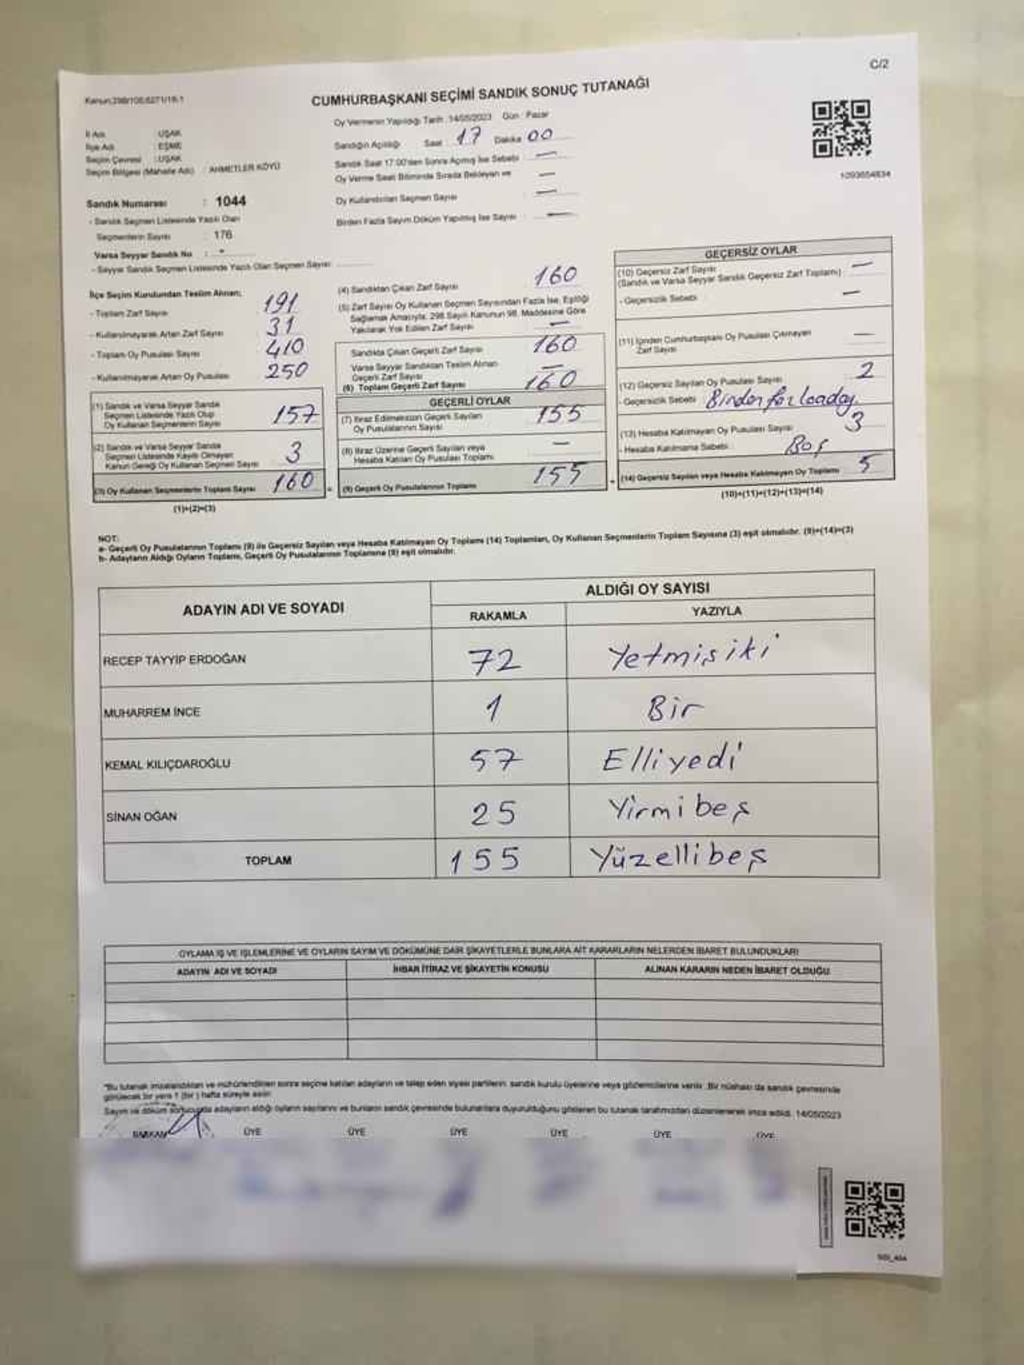 C/2
Kanun:298/105,6271/18-1
CUMHURBAŞKANI SEÇİMİ SANDIK SONUÇ TUTANAĞI
İl Adı : UŞAK
İlçe Adı : EŞME
Seçim Çevresi : UŞAK
Seçim Bölgesi (Mahalle Adı) : AHMETLER KÖYÜ
Sandık Numarası : 1044
- Sandık Seçmen Listesinde Yazılı Olan
Seçmenlerin Sayısı : 176
Varsa Seyyar Sandık No :
- Seyyar Sandık Seçmen Listesinde Yazılı Olan Seçmen Sayısı
Oy Vermenin Yapıldığı Tarih :14/05/2023 Gün : Pazar
Sandığın Açıldığı Saat : 17 Dakika 00
Sandık Saat 17:00'den Sonra Açılmış İse Sebebi : —
Oy Verme Saat Bitiminde Sırada Bekleyen ve —
Oy Kullandırılan Seçmen Sayısı : —
Birden Fazla Sayım Döküm Yapılmış İse Sayısı : —
1093654834
İlçe Seçim Kurulundan Teslim Alınan;
- Toplam Zarf Sayısı 191
- Kullanılmayarak Artan Zarf Sayısı 31
- Toplam Oy Pusulası Sayısı 410
- Kullanılmayarak Artan Oy Pusulası 250
(1) Sandık ve Varsa Seyyar Sandık
Seçmen Listesinde Yazılı Olup
Oy Kullanan Seçmenlerin Sayısı 157
(2) Sandık ve Varsa Seyyar Sandık
Seçmen Listesinde Kayıtlı Olmayan
Kanun Gereği Oy Kullanan Seçmen Sayısı 3
(3) Oy Kullanan Seçmenlerin Toplam Sayısı 160
(1)+(2)=(3)
(4) Sandıktan Çıkan Zarf Sayısı 160
(5) Zarf Sayısı Oy Kullanan Seçmen Sayısından Fazla İse, Eşitliği
Sağlamak Amacıyla, 298 Sayılı Kanunun 98. Maddesine Göre
Yakılarak Yok Edilen Zarf Sayısı —
Sandıkta Çıkan Geçerli Zarf Sayısı 160
Varsa Seyyar Sandıktan Teslim Alınan
Geçerli Zarf Sayısı —
(6) Toplam Geçerli Zarf Sayısı 160
GEÇERLİ OYLAR
(7) İtiraz Edilmeksizin Geçerli Sayılan
Oy Pusulalarının Sayısı 155
(8) İtiraz Üzerine Geçerli Sayılan veya
Hesaba Katılan Oy Pusulası Toplamı —
(9) Geçerli Oy Pusulalarının Toplamı 155
GEÇERSİZ OYLAR
(10) Geçersiz Zarf Sayısı —
(Sandık ve Varsa Seyyar Sandık Geçersiz Zarf Toplamı)
- Geçersizlik Sebebi : —
(11) İçinden Cumhurbaşkanı Oy Pusulası Çıkmayan
Zarf Sayısı —
(12) Geçersiz Sayılan Oy Pusulası Sayısı 2
- Geçersizlik Sebebi : Birden fazla aday
(13) Hesaba Katılmayan Oy Pusulası Sayısı 3
- Hesaba Katılmama Sebebi : Boş
(14) Geçersiz Sayılan veya Hesaba Katılmayan Oy Toplamı 5
(10)+(11)+(12)+(13)=(14)
NOT:
a- Geçerli Oy Pusulalarının Toplamı (9) ile Geçersiz Sayılan veya Hesaba Katılmayan Oy Toplamı (14) Toplamları, Oy Kullanan Seçmenlerin Toplam Sayısına (3) eşit olmalıdır. (9)+(14)=(3)
b- Adayların Aldığı Oyların Toplamı, Geçerli Oy Pusulalarının Toplamına (9) eşit olmalıdır.
ADAYIN ADI VE SOYADI
ALDIĞI OY SAYISI
RAKAMLA YAZIYLA
RECEP TAYYİP ERDOĞAN 72 Yetmişiki
MUHARREM İNCE 1 Bir
KEMAL KILIÇDAROĞLU 57 Elliyedi
SİNAN OĞAN 25 Yirmibeş
TOPLAM 155 Yüzellibeş
OYLAMA İŞ VE İŞLEMLERİNE VE OYLARIN SAYIM VE DÖKÜMÜNE DAİR ŞİKAYETLERLE BUNLARA AİT KARARLARIN NELERDEN İBARET BULUNDUKLARI
ADAYIN ADI VE SOYADI İHBAR İTİRAZ VE ŞİKAYETİN KONUSU ALINAN KARARIN NEDEN İBARET OLDUĞU
"Bu tutanak imzalandıktan ve mühürlendikten sonra seçime katılan adayların ve talep eden siyasi partilerin sandık kurulu üyelerine veya gözlemcilerine verilir. Bir nüshası da sandık çevresinde
görülecek bir yere 1 (bir) hafta süreyle asılır.
Sayım ve döküm sonucunda adayların aldığı oyların sayılarını ve bunların sandık çevresinde bulunanlara duyurulduğunu gösteren bu tutanak tarafımızdan düzenlenerek imza edildi. 14/05/2023
BAŞKAN ÜYE ÜYE ÜYE ÜYE ÜYE ÜYE